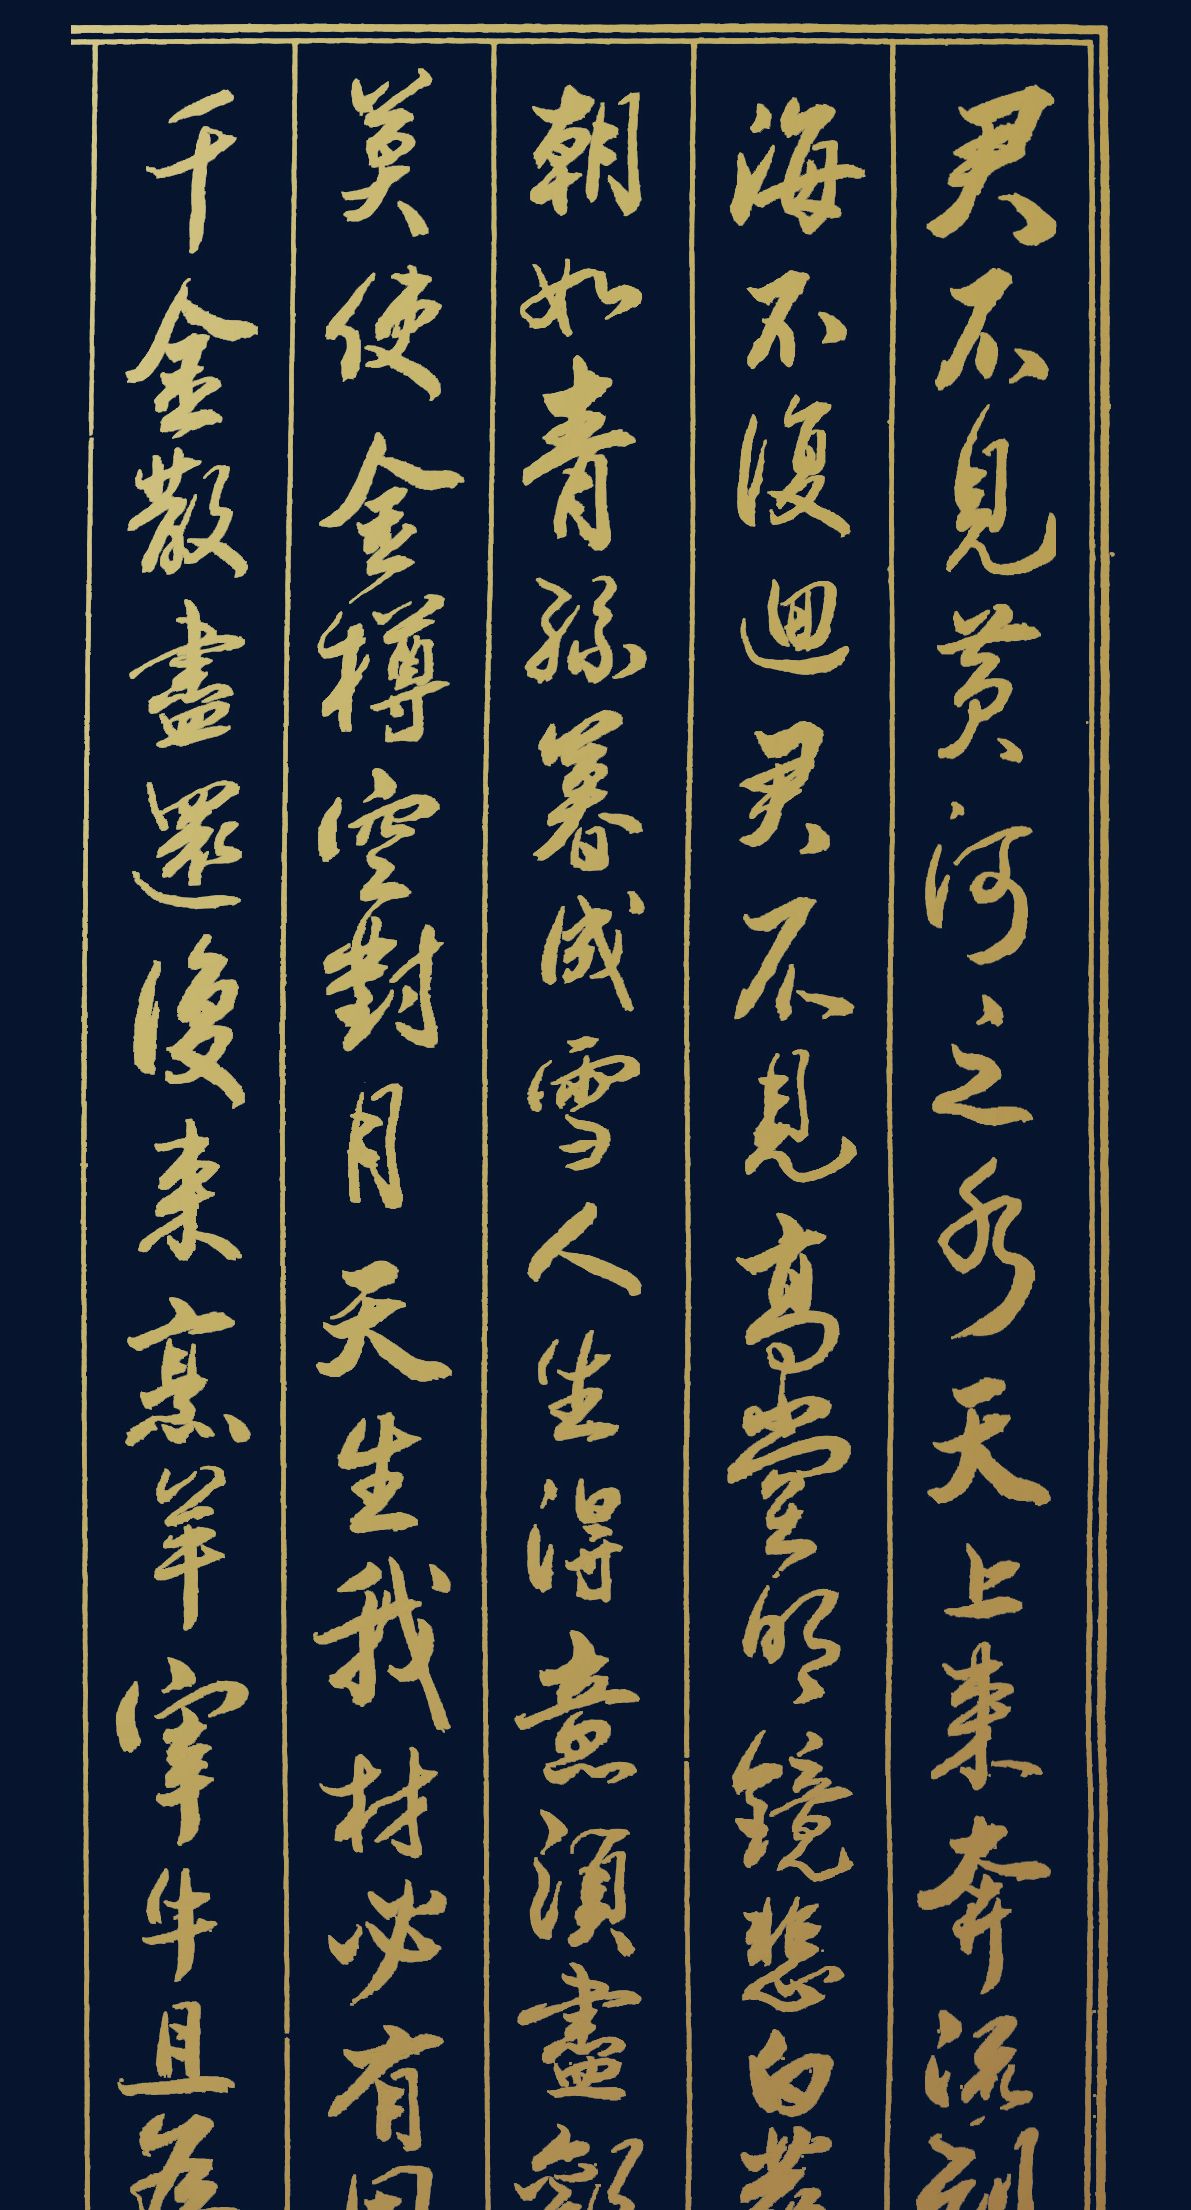 君不見黃河之水天上来奔流到
海不復迴君不見高堂明鏡悲白髮
朝如青絲暮成雪人生得意須盡歡
莫使金樽空對月天生我材必有用
千金散盡還復来烹羊宰牛且為